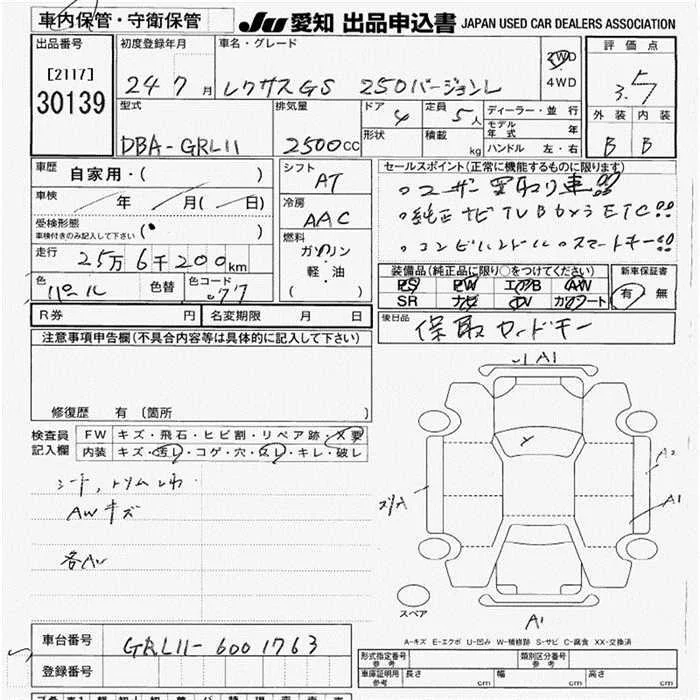 車内保管・守衛保管 JU 愛知 出品申込書 JAPAN USED CAR DEALERS ASSOCIATION
出品番号 初度登録年月 車名・グレード 評価点
[2117] 24 7 月 レクサスGS 250バージョンL 2WD 4WD 3.5
30139 型式 排気量 ドア 4 定員 5人 ディーラー・並行 外装 内装
モデル年式 年
形状 積載 kg ハンドル 左・右
DBA-GRL11 2500cc B B
車歴 自家用・( ) シフト AT セールスポイント(正常に機能するものに限ります)
車検 年 月( 日) 冷房 AAC
受検形態 車検付きのみ記入して下さい ( )
。ユーザー買取り車!!
。純正ナビTVBカメラETC!!
。コンビハンドル。スマートキー!!
走行 25万6千200km 燃料 ガソリン 軽・油 ( )
色 パール 色替 色コード 077
装備品(純正品に限り○をつけてください) 新車保証書
PS PW エアB AW 有 無
SR ナビ TV カワシート
R券 円 名変期限 月 日 後日品 保取カードキー
注意事項申告欄(不具合内容等は具体的に記入して下さい)
修復歴 有 〔箇所 〕
検査員記入欄 FW キズ・飛石・ヒビ割・リペア跡・X要
内装 キズ・汚レ・コゲ・穴・スレ・キレ・破レ
シート,トリム
AWキズ
A1
A2
A1
スペア
A1
A-キズ E-エクボ U-凹み W-補修跡 S-サビ C-腐食 XX-交換済
車台番号 GRL11-6001763
登録番号
形式指定番号 参考 類別区分番号 参考
車庫証明用 参考 長さ cm 幅 cm 高さ cm